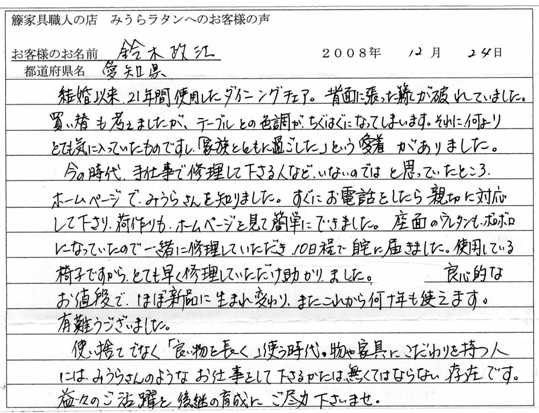 籐家具職人の店 みうらラタンへのお客様の声
お客様のお名前 鈴木政江 2008年 12月 24日
都道府県名 愛知県
結婚以来、21年間使用したダイニングチェア。背面に張った籐が破れていました。
買い替も考えましたが、テーブルとの色調がちぐはぐになってしまいます。それに何より
とても気に入っていたものですし「家族とともに過ごした」という愛着がありました。
今の時代、手仕事で修理して下さる人など、いないのではと思っていたところ、
ホームページで、みうらさんを知りました。すぐにお電話をしたら親切に対応
して下さり、荷作りも、ホームページを見て簡単にできました。座面のウレタンもボロボロ
になっていたので一緒に修理していただき、10日程で自宅に届きました。使用している
椅子ですから、とても早く修理していただけ助かりました。 良心的な
お値段で、ほぼ新品に生まれ変わり、またこれから何十年も使えます。
有難うございました。
使い捨てでなく「良い物を長く」使う時代。物や家具にこだわりを持つ人
には、みうらさんのようなお仕事をして下さるかたは無くてはならない存在です。
益々のご活躍と後継の育成にご尽力下さいませ。